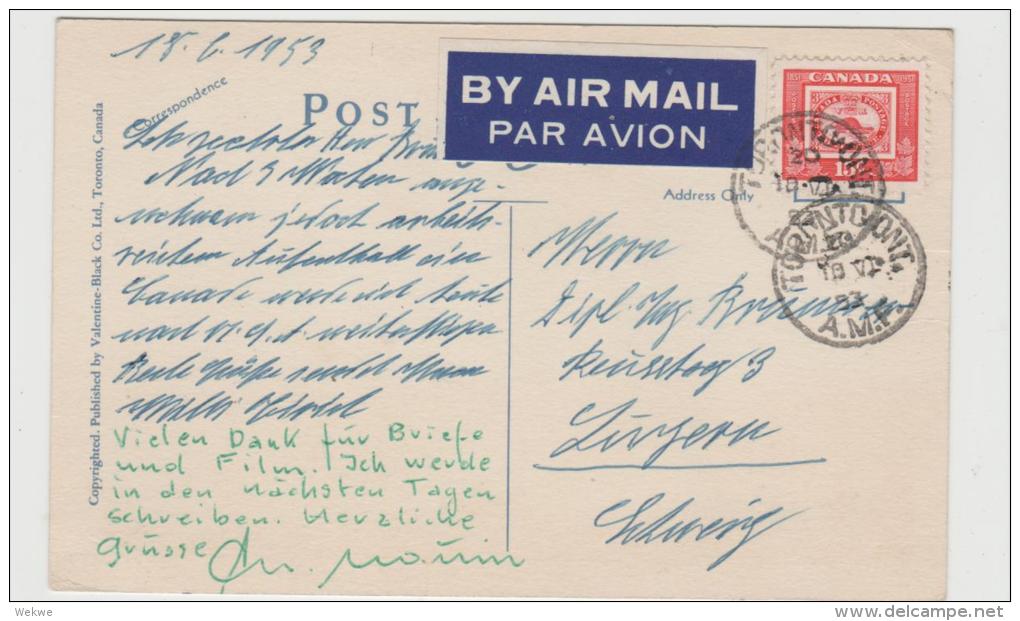 18.6.1953
Correspondence
POST
BY AIR MAIL
PAR AVION
1851 CANADA 1951
POSTAGE
15
Address Only
TORONTO, ONT.
18 VI
A.M.P.
TORONTO, ONT.
18 VI
53
A.M.P.
Sehr geehrter Herr
Nach 3 Wochen ange-
nehmem jedoch arbeits-
reichem Aufenthalt in
Canada werde ich heute
nach
Grüsse sendet Ihnen
Willi
Vielen Dank für Briefe
und Film. Ich werde
in den nächsten Tagen
schreiben. Herzliche
Grüsse
Herrn
Dipl Ing
3
Luzern
Schweiz
Copyrighted. Published by Valentine-Black Co. Ltd., Toronto, Canada
Wekwe
delcampe.net